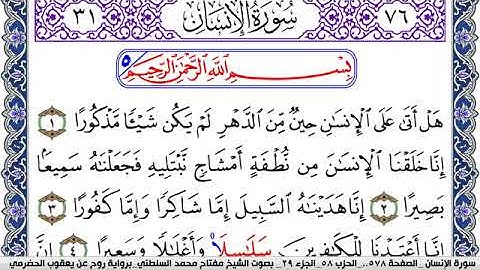 ٣١ سُورَةُ الإِنسَانِ ٧٦
بِسْمِ ٱللَّهِ ٱلرَّحْمَٰنِ ٱلرَّحِيمِ ٥
هَلْ أَتَىٰ عَلَى ٱلْإِنسَٰنِ حِينٌ مِّنَ ٱلدَّهْرِ لَمْ يَكُن شَيْـًٔا مَّذْكُورًا ١
إِنَّا خَلَقْنَا ٱلْإِنسَٰنَ مِن نُّطْفَةٍ أَمْشَاجٍ نَّبْتَلِيهِ فَجَعَلْنَٰهُ سَمِيعًۢا
بَصِيرًا ٢ إِنَّا هَدَيْنَٰهُ ٱلسَّبِيلَ إِمَّا شَاكِرًا وَإِمَّا كَفُورًا ٣
إِنَّا أَعْتَدْنَا لِلْكَٰفِرِينَ سَلَٰسِلَا۟ وَأَغْلَٰلًا وَسَعِيرًا ٤ إِنَّ
سورة الإنسان_الصفحة ٥٧٨_الحزب ٥٨_الجزء ٢٩_بصوت الشيخ مفتاح محمد السلطني_برواية روح عن يعقوب الحضرمي